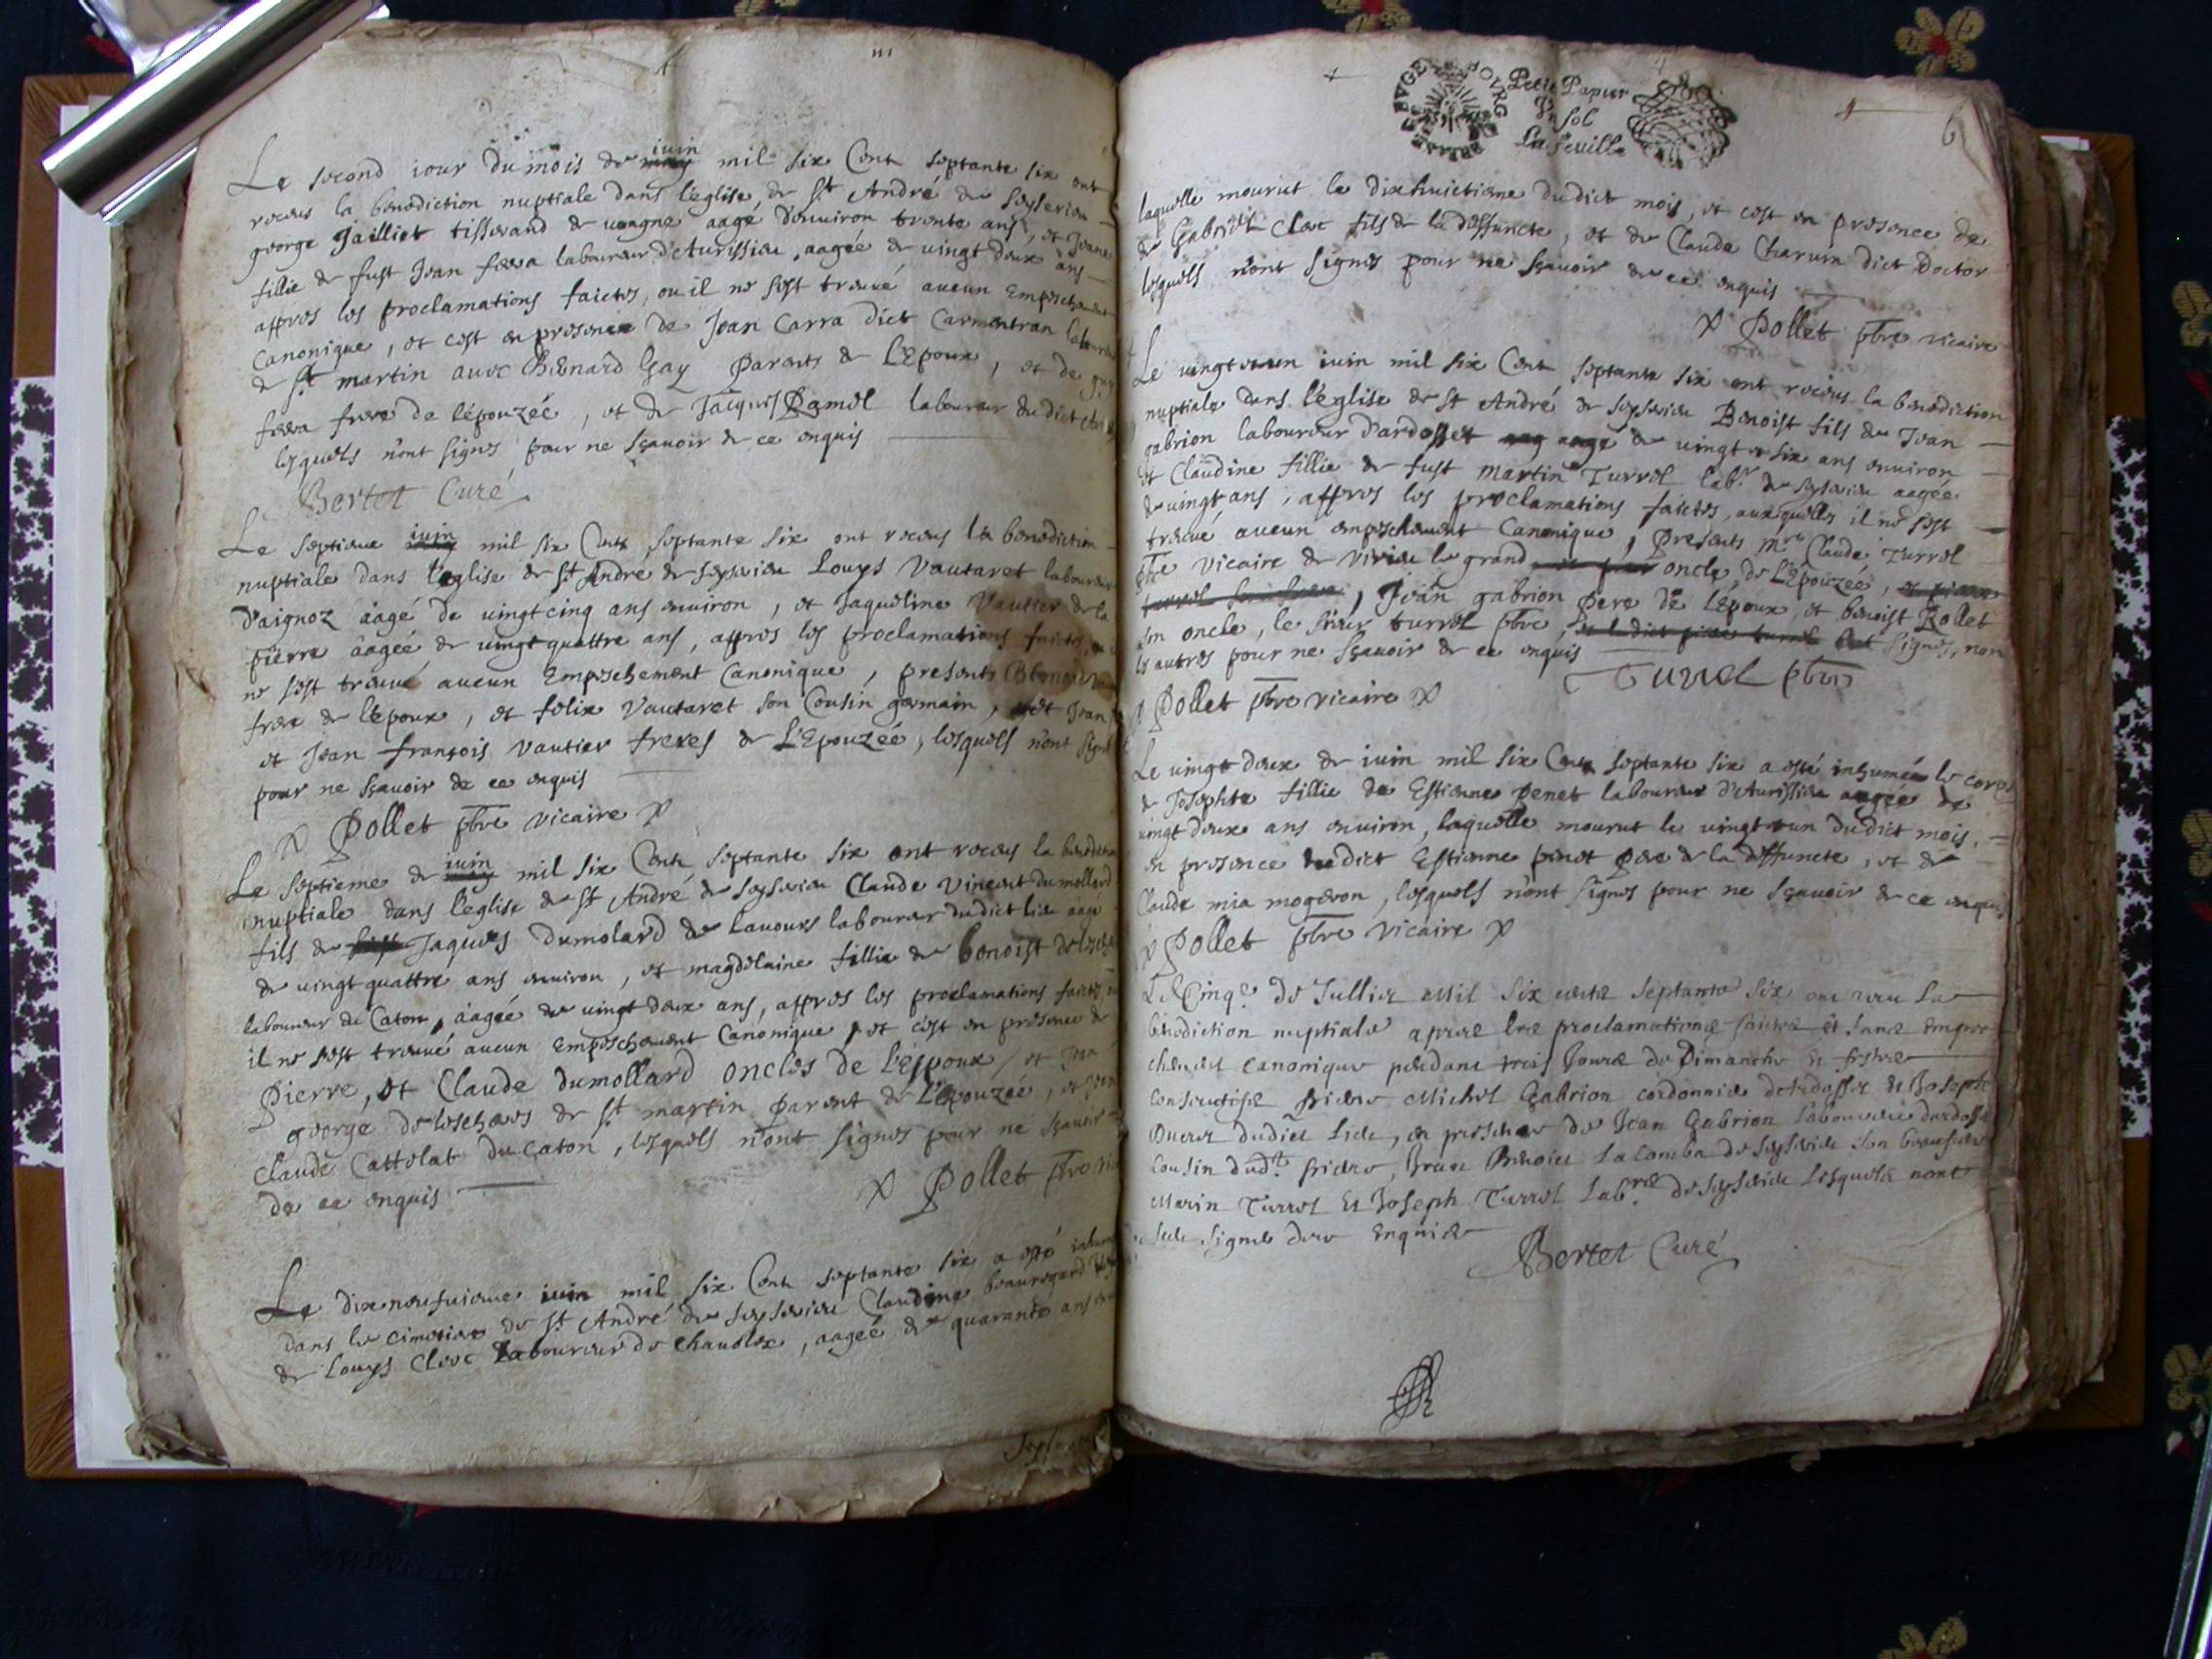 Le second iour du mois de iuin mil six Cent septante six ont
receus la benediction nuptiale dans l'eglise de St André de Seyserieu
george Jailliet tisserand de uongne aagé d'enuiron trente ans, et Jeane
fillie de fust Jean fera laboureur d'Aurissieu, aagée de uingt deux ans
appres les proclamations faictes, ou il ne s'est treuué aucun Empeschement
Canonique, et c'est en presence de Jean Carra dict Carmentran laboureur
de St martin auec Benard Gay Parents de L'Epoux, et de guy
fera frere de l'épouzée, et de Jacques Pamel laboureur du dict
lesquels n'ont signés pour ne sçauoir de ce enquis
Bertet Curé
Le septieme iuin mil six Cents septante six ont receus la benediction
nuptiale dans l'eglise de St André de Seyserieu Louys Vautaret laboureur
d'aignoz aagé de uingt cinq ans enuiron, et Jaqueline Vautier de la
pierre aagée de uingt quattre ans, appres les proclamations faictes,
ne s'est treuué aucun Empeschement Canonique, presents
frere de l'epoux, et felix Vautaret son Cousin germain, et Jean
et Jean françois Vautier freres de L'Epouzée, lesquels n'ont signé
pour ne sçauoir de ce enquis
Pollet pbre vicaire
Le septieme de iuin mil six Cents septante six ont receus la benediction
nuptiale dans l'eglise de St André de Seyserieu Claude Vincent dumollard
fils de Jaques Dumolard de Lauours laboureur dudict lieu aagé
de uingt quattre ans enuiron, et magdelaine fillie de benoist
laboureur de Caton, aagée de uingt deux ans, appres les proclamations faictes,
il ne s'est treuué aucun Empeschement Canonique, et c'est en presence de
Pierre, et Claude dumollard oncles de L'Epoux, et
george deleschaos de St martin parent de L'Epouzée, et
Claude Cattelat du Caton, lesquels n'ont signés pour ne sçauoir
de ce enquis
Pollet pbre
Le dixneufuieme iuin mil six Cents septante six a esté
dans le cimetiere de St André de Seyserieu Claudine beauregard
de Louys Clerc Laboureur de Chauolex, aagée de quarante ans
Petit Papier
Un sol
La feuille
6
laquelle mourut le dixhuictieme dudict mois, et c'est en presence de
de Gabriel Clerc fils de la deffuncte, et de Claude Charum dict Doctor
lesquels n'ont signés pour ne sçauoir de ce enquis
Pollet pbre vicaire
Le uingt et un iuin mil six Cents septante six ont receus la benediction
nuptiale dans l'église de St André de Seyserieu Benoist fils de Jean
gabrion laboureur d'ardosset aagé de uingt et six ans enuiron
et Claudine fillie de fust martin Turrel labr de Seyserieu aagée
de uingt ans, appres les proclamations faictes, auxquelles il ne s'est
treuué aucun empeschement Canonique, Presents mre Claude Turrel
pbre vicaire de Virieu le grand oncle de L'Epouzée,
Jean gabrion Pere de L'Epoux, et benoist Rollet
son oncle, le sieur turrel pbre, signés, non
les autres pour ne sçauoir de ce enquis
Turrel pbre
Pollet pbre vicaire
Le uingt deux de iuin mil six Cents septante six a esté inhumée le corps
de Josephte fillie de Estienne Penet laboureur d'Aurissieu aagée de
uingt deux ans enuiron, laquelle mourut le uingt et un dudict mois,
en presence dudict Estienne penet Pere de la deffuncte, et de
Claude mia mogeron, lesquels n'ont signés pour ne sçauoir de ce enquis
Pollet pbre vicaire
Le Cinqe de Jullier Mil six cents septante six ont receu la
benediction nuptiale apres les proclamations faictes et sans Empes
chement canonique pendant trois Jours de Dimanche et festes
Consecutifs Michel Gabrion cordonnier dardosset et Joseph
dudict Lieu, en presence de Jean Gabrion Laboureur dardosset
Cousin dudt Benoict Lacombe de Seyserieu son beaufrere
Marin Turrel et Joseph Turrel Labrs de Seyserieu Lesquels nont
sceu signer de ce Enquis
Bertet Curé